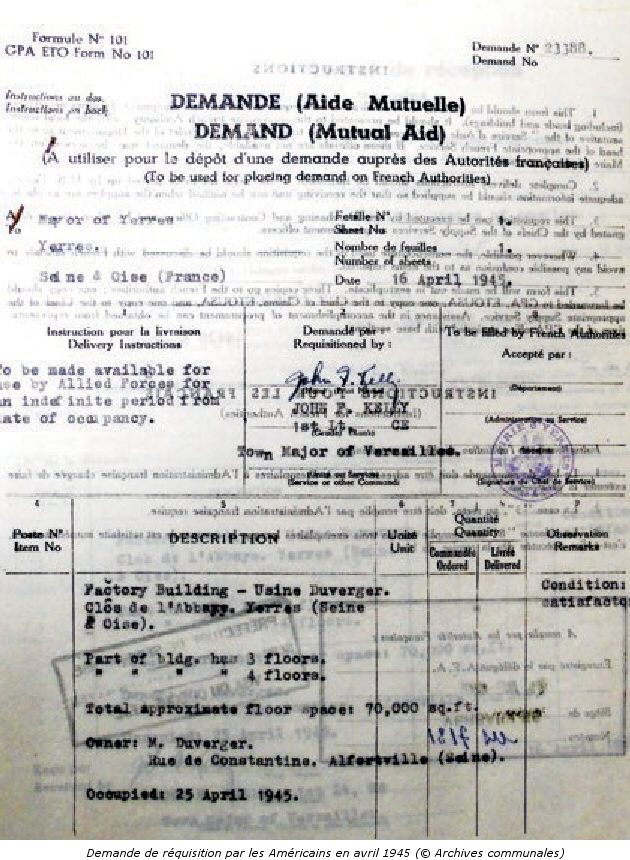 Formule N° 101
GPA ETO Form No 101
Demande N° 23388.
Demand No
Instructions au dos.
Instructions on back
DEMANDE (Aide Mutuelle)
DEMAND (Mutual Aid)
(A utiliser pour le dépôt d'une demande auprès des Autorités françaises)
(To be used for placing demand on French Authorities)
A/
To
Mayor of Yerres
Yerres.
Seine & Oise (France)
Feuille N° 1.
Sheet No
Nombre de feuilles 1.
Number of sheets
Date 16 April 1945.
1
Instruction pour la livraison
Delivery Instructions
To be made available for
use by Allied Forces for
an indefinite period from
date of occupancy.
2
Demandé par
Requisitioned by :
John F. Kelly
JOHN F. KELLY
1st Lt. CE
Town Major of Versailles.
(Service or other Command)
3
To be filled by French Authorities
Accepté par :
(Département)
(Administration ou Service)
(Signature du Chef de Service)
4
Poste N°
Item No
5
DESCRIPTION
6
Unité
Unit
7
Quantité
Quantity
Commandée
Ordered
Livrée
Delivered
Observation
Remarks
Factory Building - Usine Duverger.
Clos de l'Abbaye. Yerres (Seine
& Oise).
Condition:
satisfacto
Part of bldg. has 3 floors.
" " " " 4 floors.
Total approximate floor space: 70,000 sq.ft.
Owner: M. Duverger.
Rue de Constantine. Alfortville (Seine).
Occupied: 25 April 1945.
Demande de réquisition par les Américains en avril 1945 (© Archives communales)